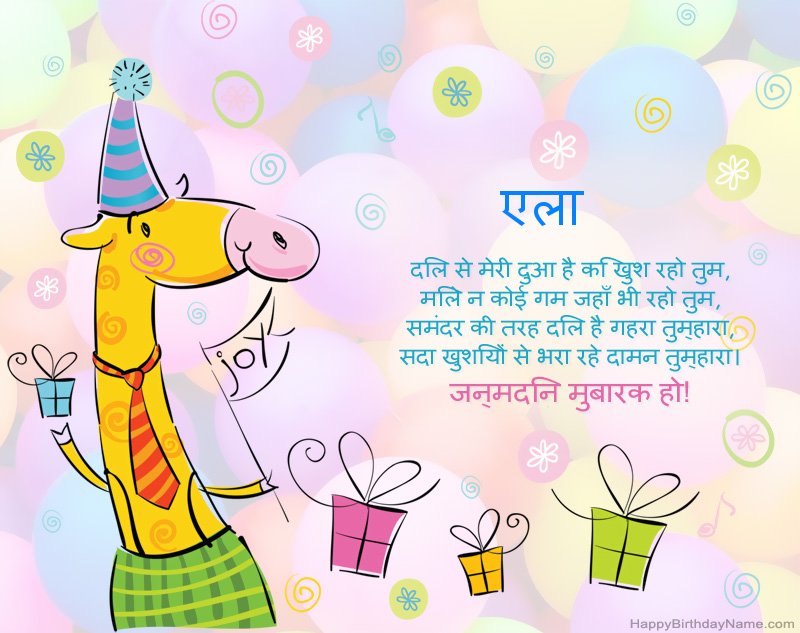 एला
दिल से मेरी दुआ है कि खुश रहो तुम,
मिले न कोई गम जहाँ भी रहो तुम,
समंदर की तरह दिल है गहरा तुम्हारा,
सदा खुशियों से भरा रहे दामन तुम्हारा।
जन्मदिन मुबारक हो!
joy
HappyBirthdayName.com